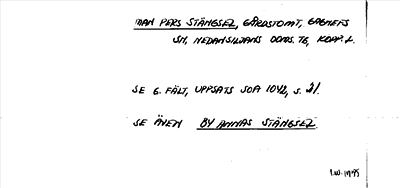 DAN PERS STÄNGSEL, GÅRDSTOMT, GAGNEFS
SN, NEDANSILJANS DOMS. TG, KOPP. L.
SE G. FÄLT, UPPSATS SOA 1042, S. 21.
SE ÄVEN BY ANNAS STÄNGSEL
I.W. 1995